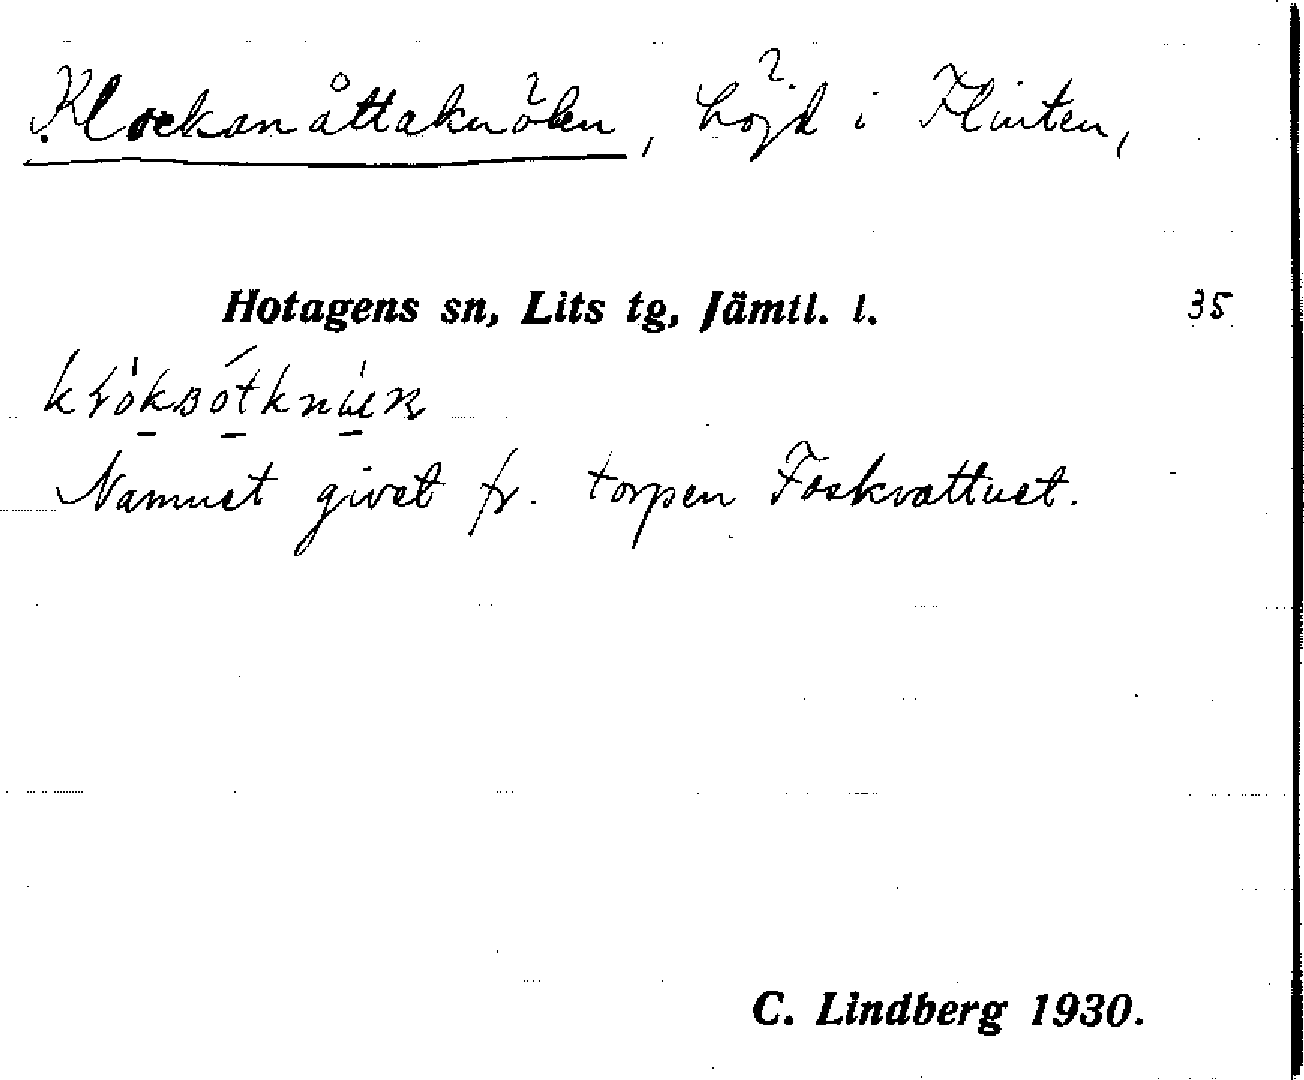 Klockanåttaknölen, höjd i Flinten,
Hotagens sn, Lits tg, Jämtl. l. 35
Namnet givet fr. torpen Foskvattnet.
C. Lindberg 1930.